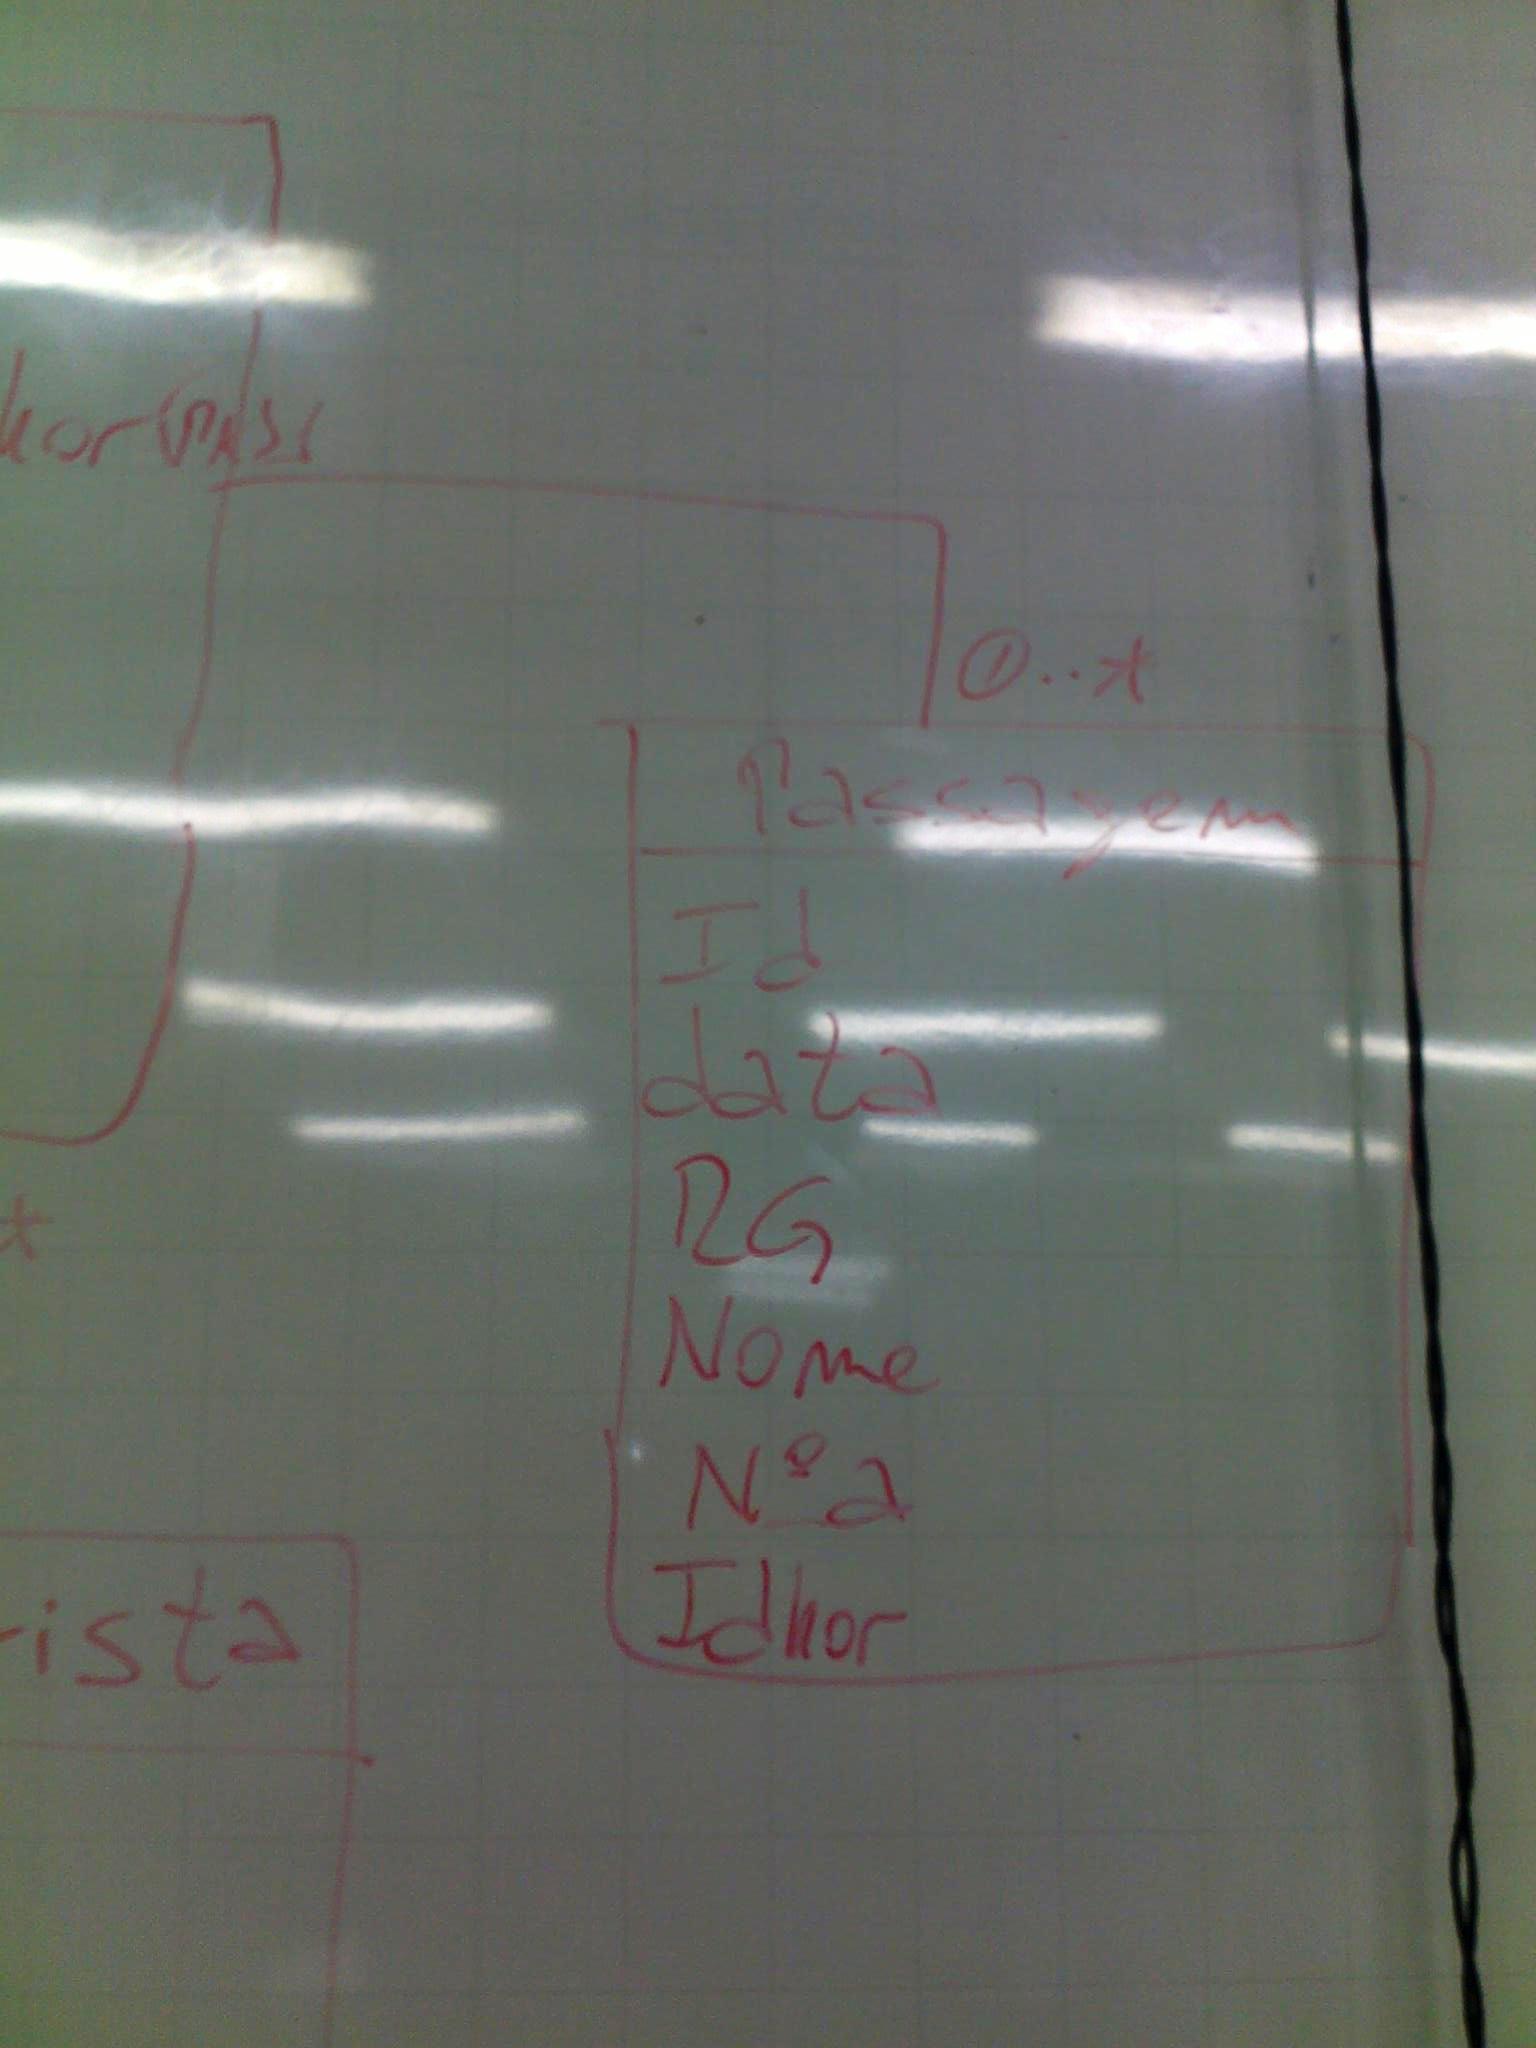 0..*
Passagem
Id
data
RG
Nome
Nº a
Idhor
*
rista